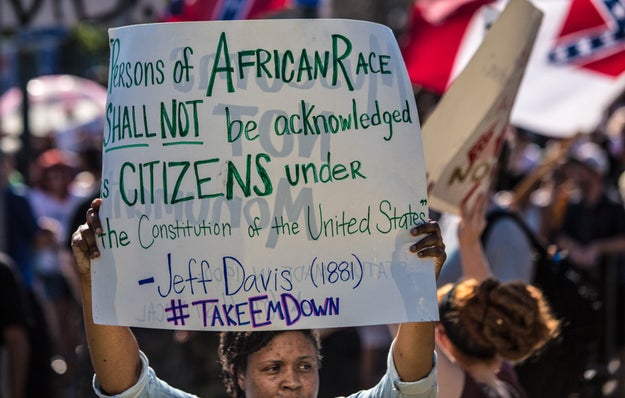 "PERSONS of AFRICAN RACE
SHALL NOT be acknowledged
as CITIZENS under
the Constitution of the United States"
- Jeff Davis (1881)
#TAKEEMDOWN
NO